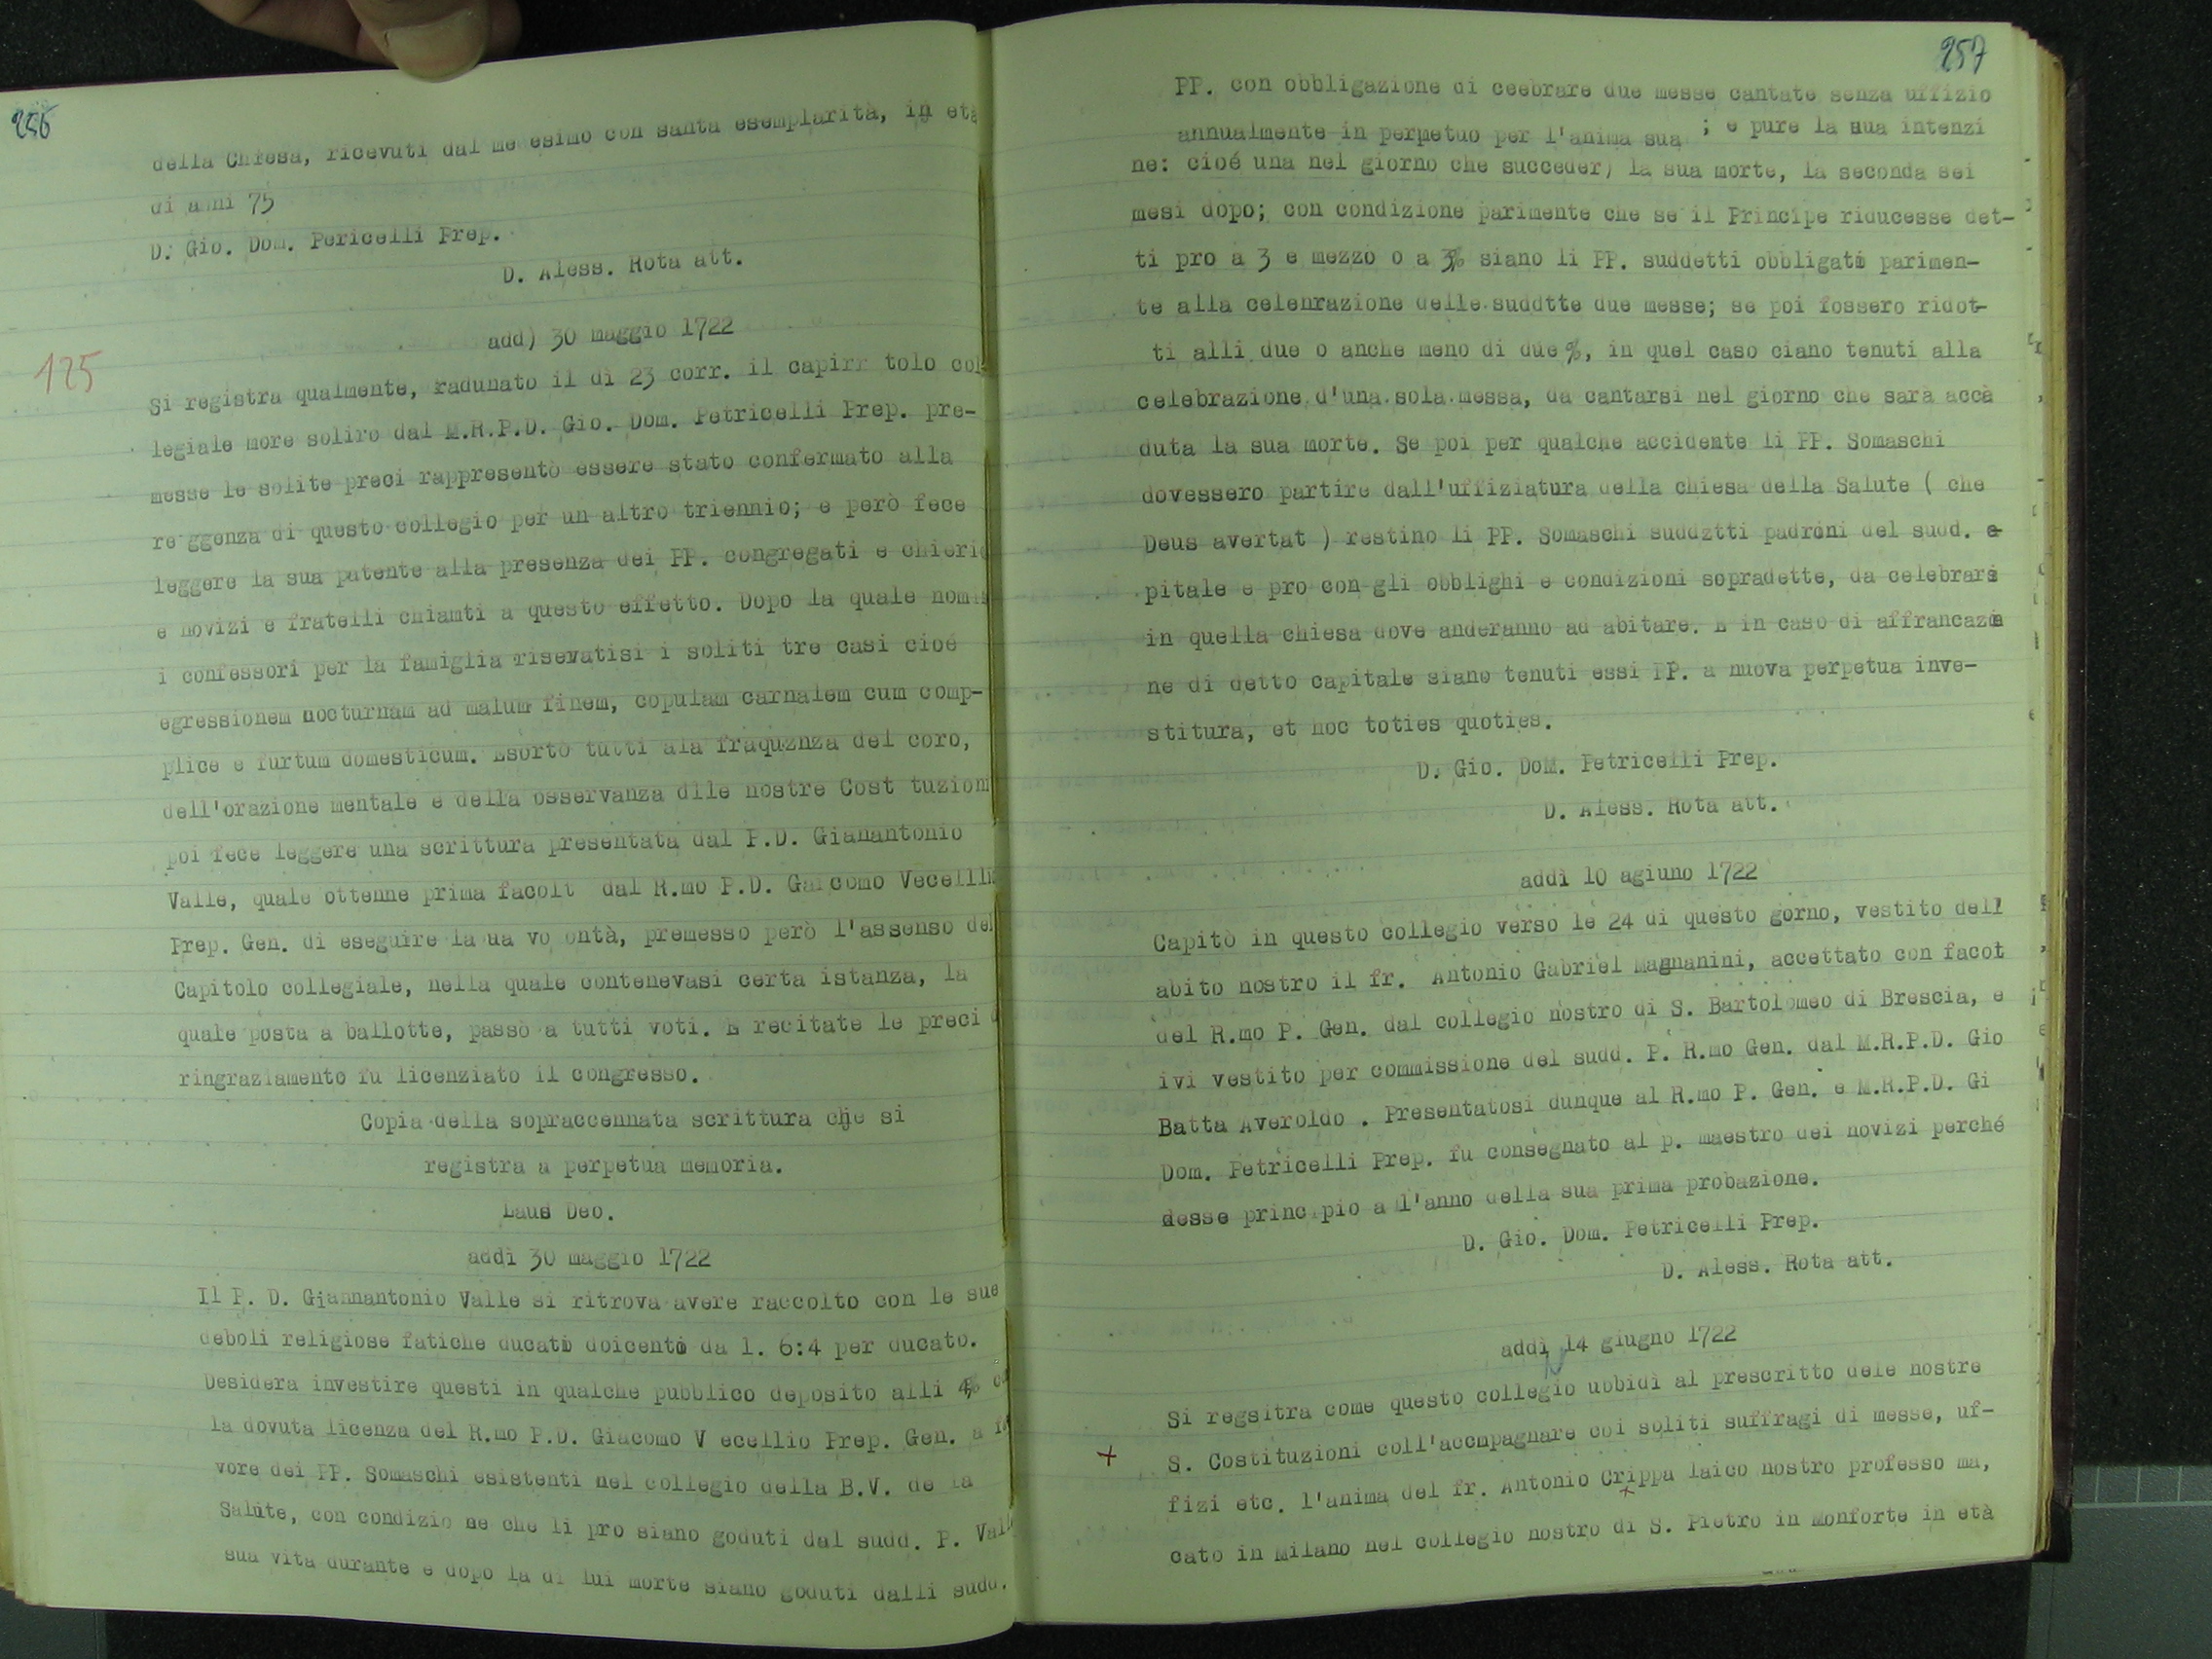 256
della Chiesa, ricevuti dal me esimo con santa esemplarità, in età
di anni 75
D. Gio. Dom. Pericelli Prep.
D. Aless. Rota att.
add) 30 maggio 1722
125
Si registra qualmente, radunato il dì 23 corr. il capirr tolo col
legiale more soliro dal M.R.P.D. Gio. Dom. Petricelli Prep. pre-
messe le solite preci rappresentò essere stato confermato alla
re ggenza di questo collegio per un altro triennio; e però fece
leggere la sua patente alla presenza dei PP. congregati e chieric
e novizi e fratelli chiamti a questo effetto. Dopo la quale nomi
i confessori per la famiglia riservatisi i soliti tre casi cioé
egressionem nocturnam ad malum finem, copulam carnalem cum comp-
plice e furtum domesticum. Esortò tutti ala fraquznza del coro,
dell'orazione mentale e della osservanza dlle nostre Cost tuzioni
poi fece leggere una scrittura presentata dal P.D. Gianantonio
Valle, quale ottenne prima facolt dal R.mo P.D. Gaicomo Vecelli
Prep. Gen. di eseguire la ua vo ontà, premesso però l'assenso del
Capitolo collegiale, nella quale contenevasi certa istanza, la
quale posta a ballotte, passò a tutti voti. E recitate le preci d
ringraziamento fu licenziato il congresso.
Copia della sopraccennata scrittura che si
registra a perpetua memoria.
Laus Deo.
addì 30 maggio 1722
Il P. D. Giannantonio Valle si ritrova avere raccolto con le sue
deboli religiose fatiche ducati doicento da l. 6:4 per ducato.
Desidera investire questi in qualche pubblico deposito alli 4%
la dovuta licenza del R.mo P.D. Giacomo V ecellio Prep. Gen. a fa
vore dei PP. Somaschi esistenti nel collegio della B.V. de la
Salute, con condizio ne che li pro siano goduti dal sudd. P. Valle
sua vita durante e dopo la di lui morte siano goduti dalli sudd.
257
PP. con obbligazione di ceebrare due messe cantate senza uffizio
annualmente in perpetuo per l'anima sua ; e pure la sua intenzi
ne: cioé una nel giorno che succeder) la sua morte, la seconda sei
mesi dopo; con condizione parimente che se il Principe riducesse det-
ti pro a 3 e mezzo o a 3% siano li PP. suddetti obbligati parimen-
te alla celenrazione delle suddtte due messe; se poi fossero ridot-
ti alli due o anche meno di due %, in quel caso ciano tenuti alla
celebrazione d'una sola messa, da cantarsi nel giorno che sarà accà
duta la sua morte. Se poi per qualche accidente li PP. Somaschi
dovessero partire dall'uffiziatura della chiesa della Salute ( che
Deus avertat ) restino li PP. Somaschi suddztti padroni del sudd.
pitale e pro con gli obblighi e condizioni sopradette, da celebrarsi
in quella chiesa dove anderanno ad abitare. E in caso di affrancazio
ne di detto capitale siano tenuti essi PP. a nuova perpetua inve-
stitura, et hoc toties quoties.
D. Gio. DoM. Petricelli Prep.
D. Aless. Rota att.
addì 10 agiuno 1722
Capitò in questo collegio verso le 24 di questo gorno, vestito dell
abito nostro il fr. Antonio Gabriel Magnanini, accettato con facot
del R.mo P. Gen. dal collegio nostro di S. Bartolomeo di Brescia, e
ivi vestito per commissione del sudd. P. R.mo Gen. dal M.R.P.D. Gio
Batta Averoldo . Presentatosi dunque al R.mo P. Gen. e M.R.P.D. Gi
Dom. Petricelli Prep. fu consegnato al p. maestro dei novizi perché
desse principio a l'anno della sua prima probazione.
D. Gio. Dom. Petricelli Prep.
D. Aless. Rota att.
addì 14 giugno 1722
Si regsitra come questo collegio ubbidì al prescritto dele nostre
S. Costituzioni coll'accmpagnare coi soliti suffragi di messe, uf-
fizi etc. l'anima del fr. Antonio Crippa laico nostro professo ma,
cato in Milano nel collegio nostro di S. Pietro in Monforte in età